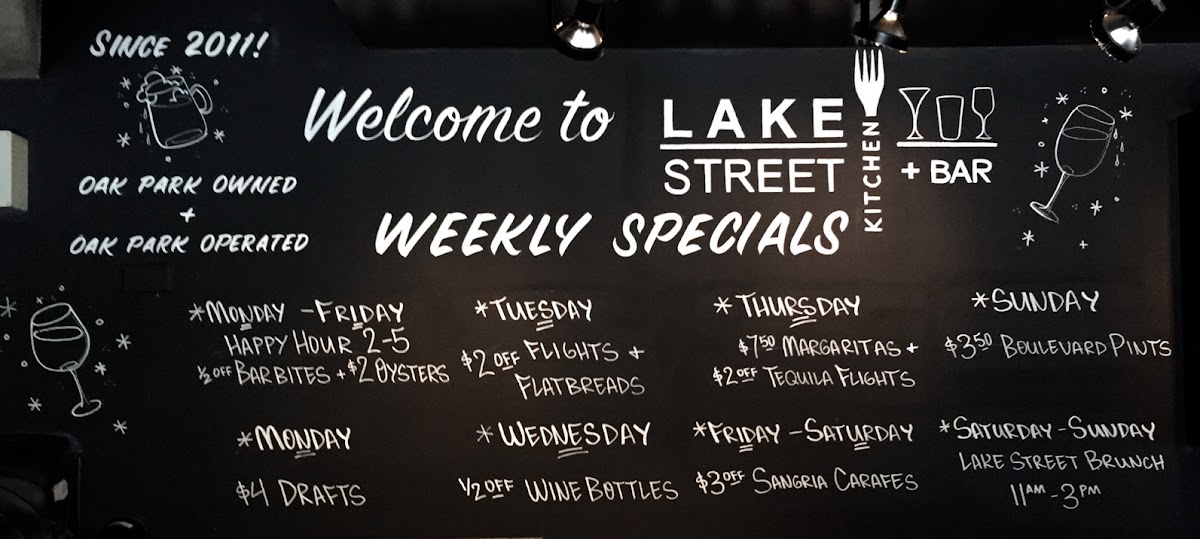 SINCE 2011!
OAK PARK OWNED
+
OAK PARK OPERATED
Welcome to
LAKE
STREET
KITCHEN
+ BAR
WEEKLY SPECIALS
*MONDAY - FRIDAY
HAPPY HOUR 2-5
½ OFF BAR BITES + $2 OYSTERS
*MONDAY
$4 DRAFTS
*TUESDAY
$2 OFF FLIGHTS +
FLATBREADS
*WEDNESDAY
1/2 OFF WINE BOTTLES
*THURSDAY
$7 50 MARGARITAS +
$2 OFF TEQUILA FLIGHTS
*FRIDAY - SATURDAY
$3 OFF SANGRIA CARAFES
*SUNDAY
$3 50 BOULEVARD PINTS
*SATURDAY - SUNDAY
LAKE STREET BRUNCH
11 AM - 3 PM